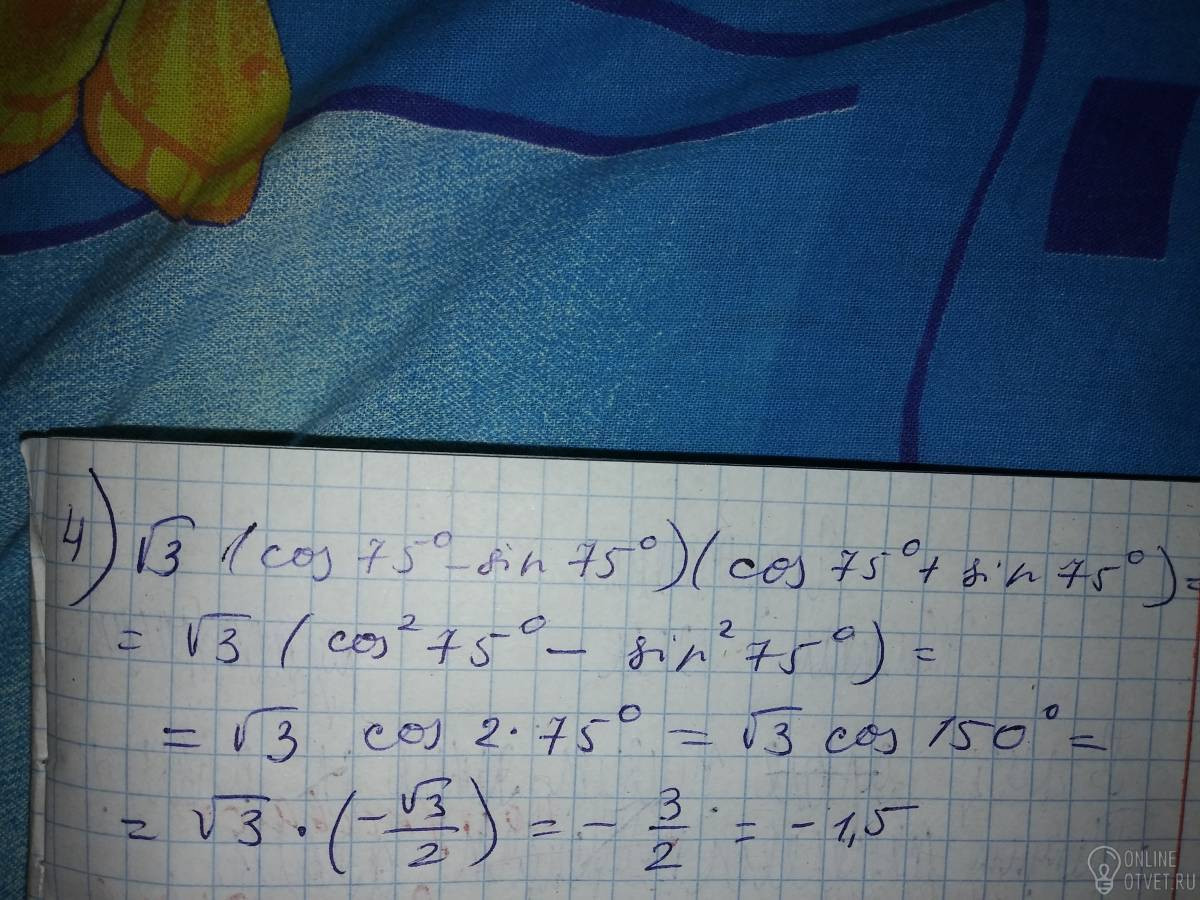 4) √3 (cos 75° - sin 75°)(cos 75° + sin 75°) =
= √3 (cos² 75° - sin² 75°) =
= √3 cos 2·75° = √3 cos 150° =
= √3 · (-√3/2) = - 3/2 = -1,5
ONLINE
OTVET.RU